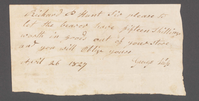 Richard P. Hunt Sir please to
let the bearer have fifteen shillings
worth in good out of your store
and you will oblige yours
April 26 1827